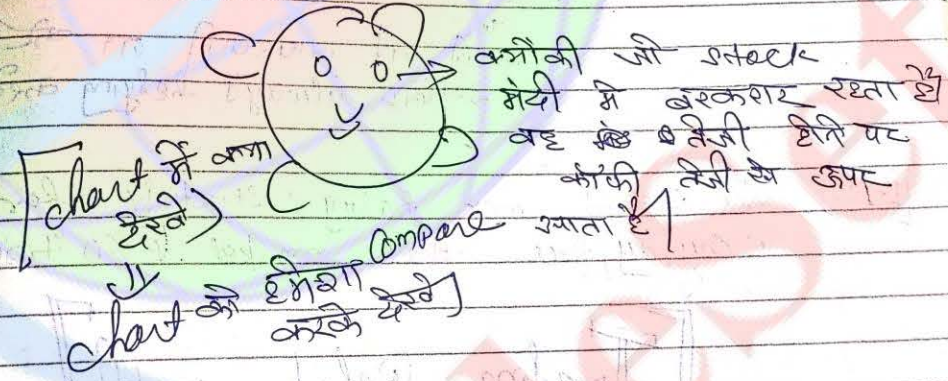 क्योंकी जो stock
मंदी मे बरकरार रहता है
वह तेजी होने पर
काफी तेजी से ऊपर
आता है
[chart में क्या
देखे]
chart को हमेशा Compare
करके देखे]